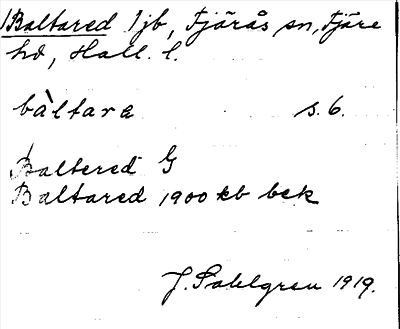 Baltared 1 jb, Fjärås sn, Fjäre
hd, Hall. l.
bàltara s. 6.
Baltered G
Baltared 1900 kb bek
J. Sahlgren 1919.